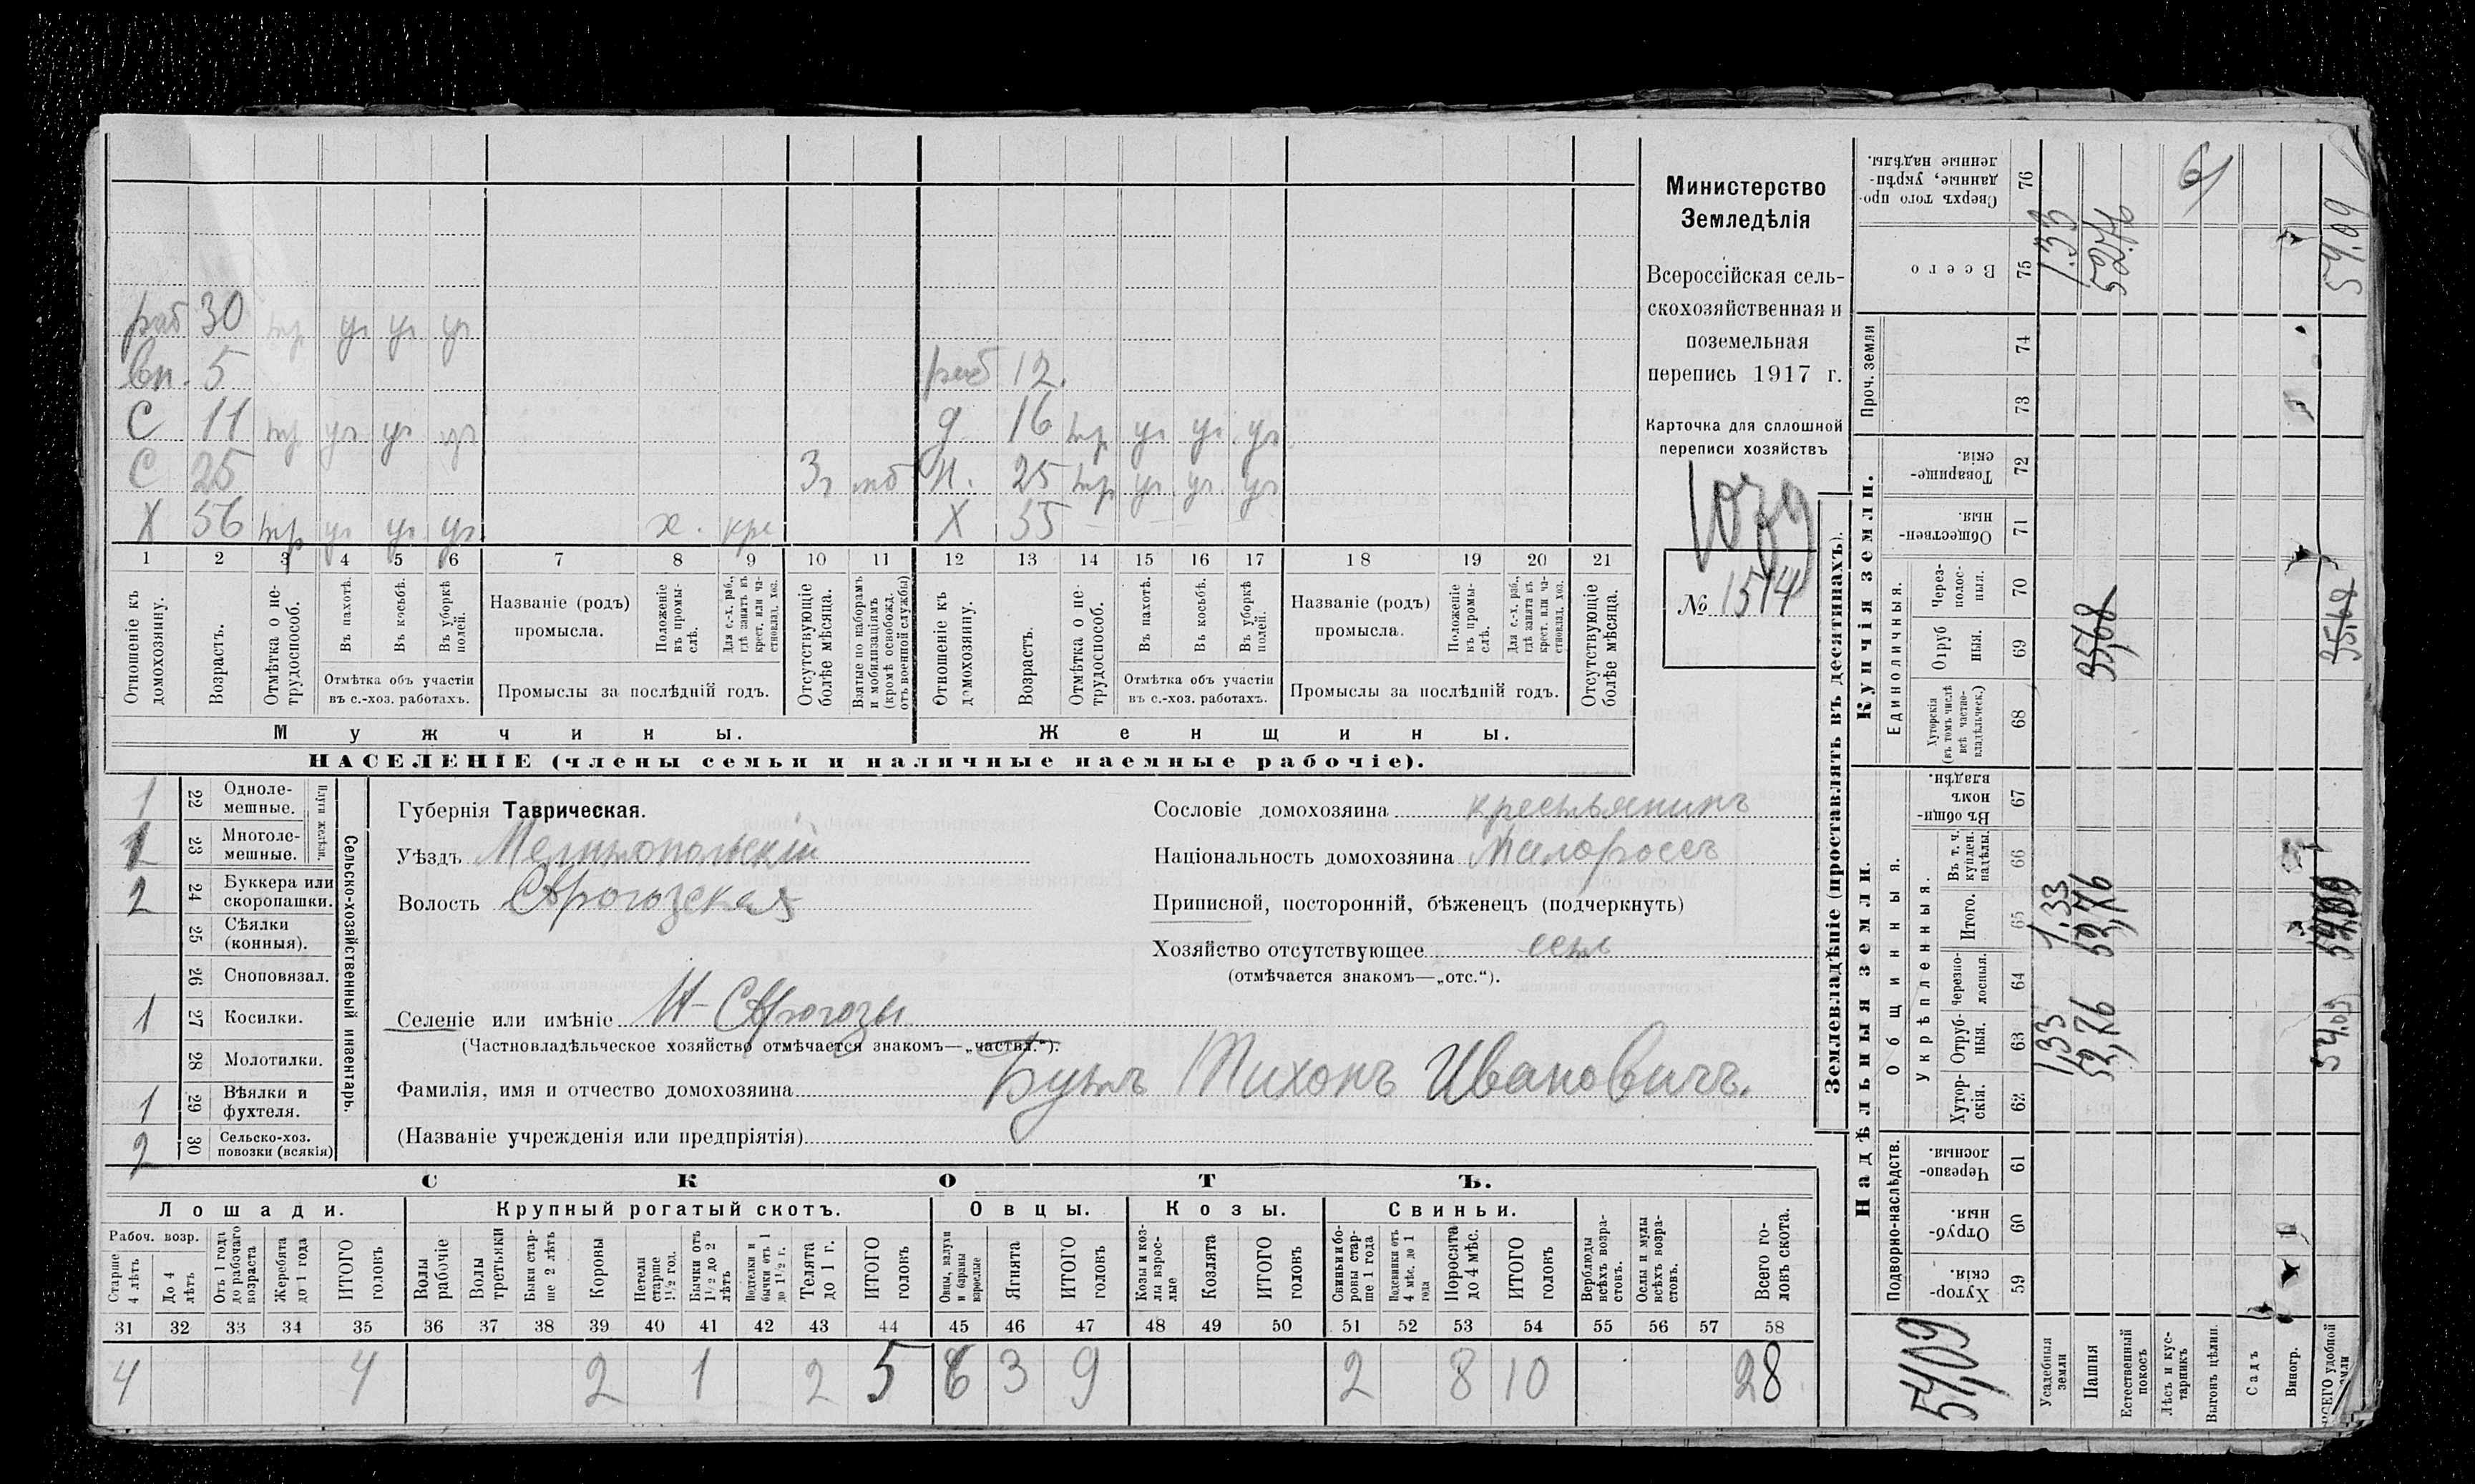 раб 30 тр уч уч уч
вп. 5 раб 12.
С 11 тр уч уч уч д 16 тр уч уч уч
С 25 3 г моб Н. 25 тр уч уч уч
Х 56 тр уч уч уч х. кре Х 55 – – –
1 2 3 4 5 6 7 8 9 10 11 12 13 14 15 16 17 18 19 20 21
Отношеніе къ домохозяину.
Возрастъ.
Отмѣтка о нетрудоспособ.
Въ пахотѣ.
Въ косьбѣ.
Въ уборкѣ полей.
Отмѣтка объ участіи
въ с.-хоз. работахъ.
Названіе (родъ)
промысла.
Положеніе въ промыслѣ.
Для с.-х. раб., гдѣ занятъ въ крест. или частновлад. хоз.
Промыслы за послѣдній годъ.
Отсутствующіе болѣе мѣсяца.
Взятые по наборамъ и мобилизаціямъ (кромѣ освобожд. отъ военной службы)
Отношеніе къ домохозяину.
Возрастъ.
Отмѣтка о нетрудоспособ.
Въ пахотѣ.
Въ косьбѣ.
Въ уборкѣ полей.
Отмѣтка объ участіи
въ с.-хоз. работахъ.
Названіе (родъ)
промысла.
Положеніе въ промыслѣ.
Для с.-х. раб., гдѣ занятъ въ крест. или частновлад. хоз.
Промыслы за послѣдній годъ.
Отсутствующіе болѣе мѣсяца.
Мужчины. Женщины.
НАСЕЛЕНІЕ (члены семьи и наличные наемные рабочіе).
Министерство
Земледѣлія
Всероссійская сель-
скохозяйственная и
поземельная
перепись 1917 г.
Карточка для сплошной
переписи хозяйствъ
№ 1514
1 22 Одноле-
мешные.
23 Многоле-
мешные.
Плуги желѣзн.
2 24 Буккера или
скоропашки.
25 Сѣялки
(конныя).
26 Сноповязал.
1 27 Косилки.
28 Молотилки.
1 29 Вѣялки и
фухтеля.
2 30 Сельско-хоз.
повозки (всякія)
Сельско-хозяйственный инвентарь.
Губернія Таврическая.
Уѣздъ Мелитопольскій
Волость
Селеніе или имѣніе
(Частновладѣльческое хозяйство отмѣчается знакомъ—„частвл.“).
Фамилія, имя и отчество домохозяина Тихонъ Ивановичъ.
(Названіе учрежденія или предпріятія)
Сословіе домохозяина крестьянинъ
Національность домохозяина Малороссъ
Приписной, посторонній, бѣженецъ (подчеркнуть)
Хозяйство отсутствующее
(отмѣчается знакомъ—„отс.“).
СКОТЪ.
Лошади. Крупный рогатый скотъ. Овцы. Козы. Свиньи.
Рабоч. возр.
Старше 4 лѣтъ
До 4 лѣтъ
Отъ 1 года до рабочаго возраста
Жеребята до 1 года
ИТОГО головъ
Волы рабочіе
Волы третьяки
Быки старше 2 лѣтъ
Коровы
Нетели старше 1½ год.
Бычки отъ 1½ до 2 лѣтъ
Подтелки и бычки отъ 1 до 1½ г.
Телята до 1 г.
ИТОГО головъ
Овцы, валухи и бараны взрослые
Ягнята
ИТОГО головъ
Козы и козлы взрослые
Козлята
ИТОГО головъ
Свиньи и боровы старше 1 года
Подсвинки отъ 4 мѣс. до 1 года
Поросята до 4 мѣс.
ИТОГО головъ
Верблюды всѣхъ возрастовъ.
Ослы и мулы всѣхъ возрастовъ.
Всего головъ скота.
31 32 33 34 35 36 37 38 39 40 41 42 43 44 45 46 47 48 49 50 51 52 53 54 55 56 57 58
4 4 2 1 2 5 6 3 9 2 8 10 28
Землевладѣніе (проставлять въ десятинахъ).
Надѣльныя земли. Купчія земли. Проч. земли
Подворно-наслѣдств.
Общинныя.
Укрѣпленныя.
Единоличныя.
Хуторскія. 59
Отрубныя. 60
Черезполосныя. 61
Хуторскія. 62
Отрубныя. 63
Черезполосныя. 64
Итого. 65
Въ т. ч. куплен. надѣлы. 66
Въ общинномъ владѣн. 67
Хуторскія (въ томъ числѣ всѣ частновладѣльческ.) 68
Отрубныя. 69
Черезполосныя. 70
Общественныя. 71
Товарищескія. 72
73
74
Всего 75
Сверхъ того проданные, укрѣпленные надѣлы. 76
54,09
Усадебныя земли 1,33 1,33 1.33
Пашня 52,76 52,76 35,68 52.76
Естественный покосъ
Лѣсъ и кустарникъ
Выгонъ цѣлин.
Садъ
Виногр.
ВСЕГО удобной земли 54.09 54,09 54.09